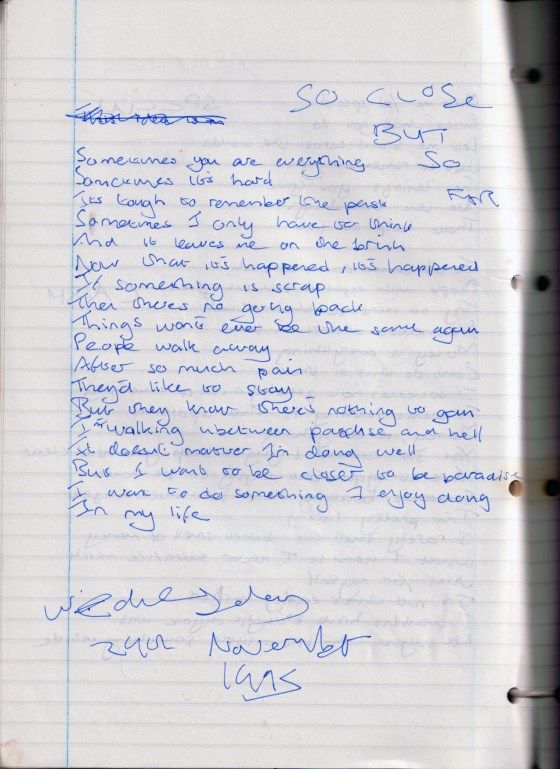 SO CLOSE
BUT
SO
FAR
Sometimes you are everything
Sometimes it's hard
It's tough to remember the past
Sometimes I only have to think
And it leaves me on the brink
Now that it's happened, it's happened
If something is scrap
Then there's no going back
Things won't ever be the same again
People walk away
After so much pain
They'd like to stay
But they know there's nothing to gain
I'm walking inbetween paradise and hell
It doesn't matter I'm doing well
But I want to be closer to be paradise
I want to do something I enjoy doing
In my life
Wednesday
29th November
1995